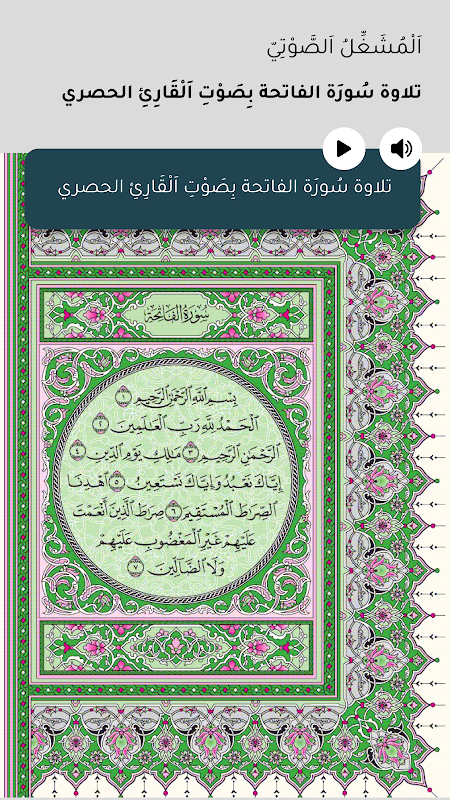 اَلْمُشَغِّلُ اَلصَّوْتِيّ
تلاوة سُورَة الفاتحة بِصَوْتِ اَلْقَارِئِ الحصري
تلاوة سُورَة الفاتحة بِصَوْتِ اَلْقَارِئِ الحصري
سُورَةُ الفَاتِحَةِ
بِسْمِ ٱللَّهِ ٱلرَّحْمَٰنِ ٱلرَّحِيمِ ١
ٱلْحَمْدُ لِلَّهِ رَبِّ ٱلْعَٰلَمِينَ ٢
ٱلرَّحْمَٰنِ ٱلرَّحِيمِ ٣ مَٰلِكِ يَوْمِ ٱلدِّينِ ٤
إِيَّاكَ نَعْبُدُ وَإِيَّاكَ نَسْتَعِينُ ٥ ٱهْدِنَا
ٱلصِّرَٰطَ ٱلْمُسْتَقِيمَ ٦ صِرَٰطَ ٱلَّذِينَ أَنْعَمْتَ
عَلَيْهِمْ غَيْرِ ٱلْمَغْضُوبِ عَلَيْهِمْ
وَلَا ٱلضَّآلِّينَ ٧